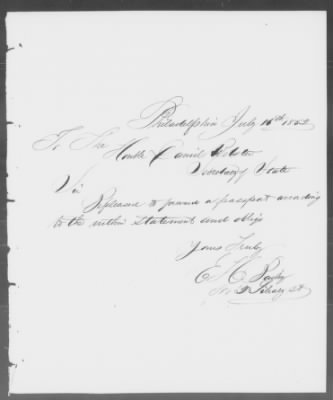 Philadelphia July 16th 1852
To The
Honble Daniel Webster
Secretary of State
Sir
Please to forward a passport according
to the within statement and oblige
Yours Truly
E. C.
No 2 Library St